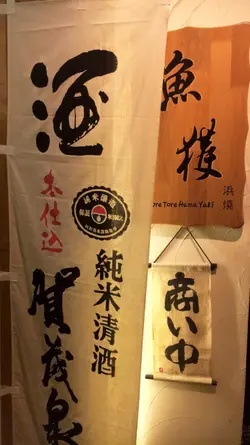 酒
本仕込
純米醸造
純米清酒
賀茂泉
魚穫
浜焼
ore Tore Hama Yaki
商い中